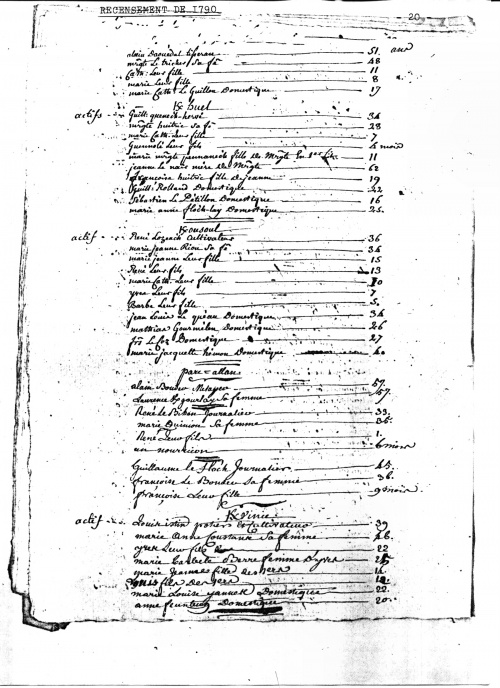 RECENSEMENT DE I790
20
alain tisseran 51. ans
mrgte sa fe 48
Cath. Leur fille 11
marie Leur fille 8
marie Cath. Le Guillou Domestique 17
K buel
actifs Guill. quenech hervé 34
mrgte huitric sa fe 28
marie Cath. Leur fille 7
Guennolé Leur fils 4 mois
marie mrgte jeannenech fille de Mrgte En 1er Lit 11
jeanne le naer mere de Mrgte 62
françoise huitric fille de jeanne 19
Guill. Rolland Domestique 22
Sebastien Le Pétillon Domestique 16
marie anne floch-lay Domestique 25
Kousoul
actif René Lozeach Cultivateur 36
marie jeanne Riou sa fe 34
marie jeanne Leur fille 15
René Leur fils 13
marie Cath. Leur fille 10
yves Leur fils 7
Barbe Leur fille 5.
jean Louis Le quéau Domestique 34
mathias Gourmelon Domestique 26
frs Domestique 27
marie jacquette hémon Domestique 40
parc=allan
alain 57.
Laurence sa femme 57.
René Le Bihan Journalier 33.
marie sa femme 35.
René Leur fils 1.
un nourricon 6 mois
Guillaume le floch Journalier 45.
françoise Le sa femme 36.
françoise Leur fille 9 mois
K vinic
actif Louis Cultivateur 39
marie anne sa femme 46.
yves Leur fils 22
marie femme D'yves
marie fille des
fils des
marie Louise Domestique 22.
anne Domestique 20.